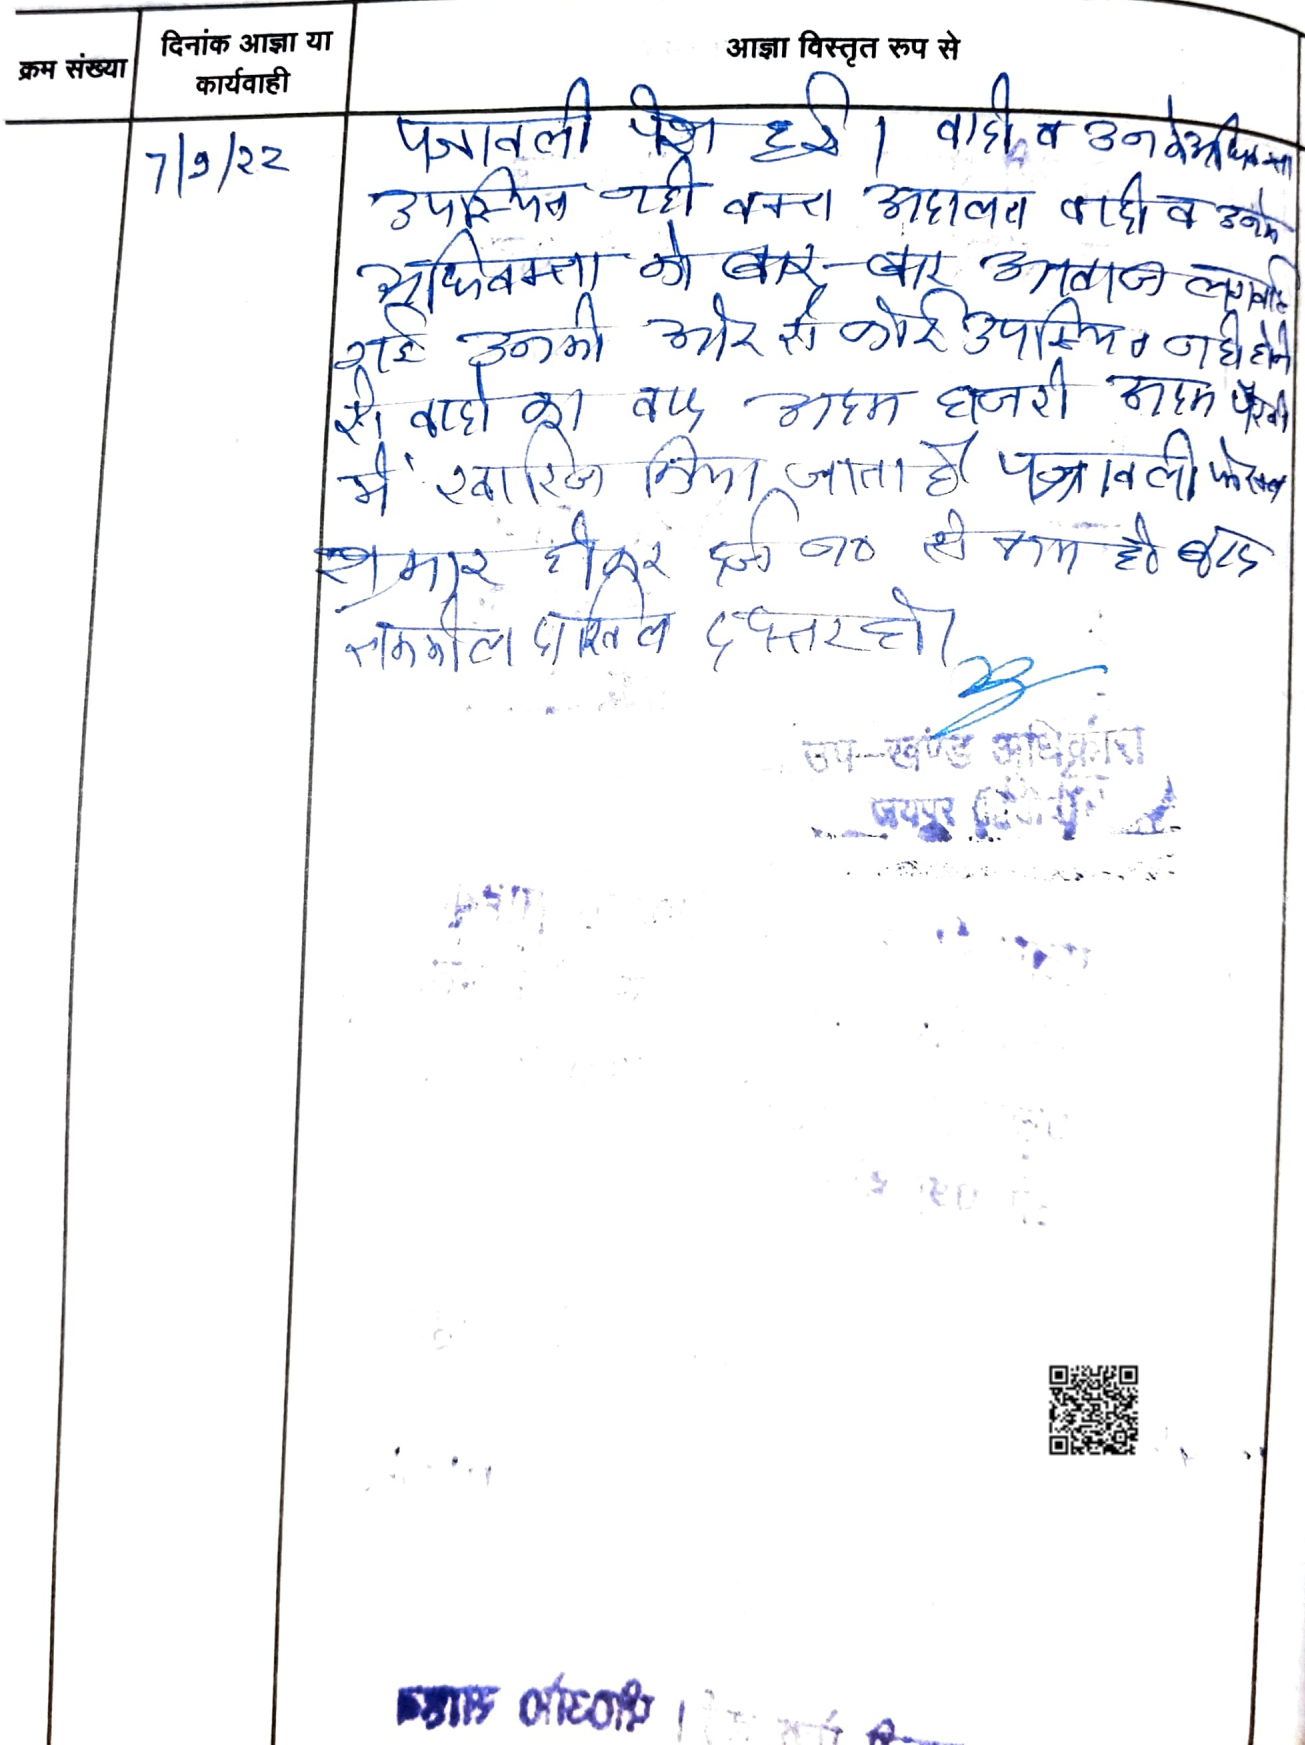 क्रम संख्या
दिनांक आज्ञा या
कार्यवाही
आज्ञा विस्तृत रुप से
7/9/22
पत्रावली पेश हुई। वादी व उनके अधिवक्ता
उपस्थित नही वक्त अदालत वादी व उनके
अधिवक्ता को बार-बार आवाज लगवाई
गई उनकी ओर से कोई उपस्थित नही होने
से वादी का वाद अदम हाजरी अदम पैरवी
में खारिज किया जाता है पत्रावली फैसल
शुमार होकर दर्ज न० से कम हो बाद
तकमील दाखिल दफ्तर हो।
उप-खण्ड अधिकारी
जयपुर